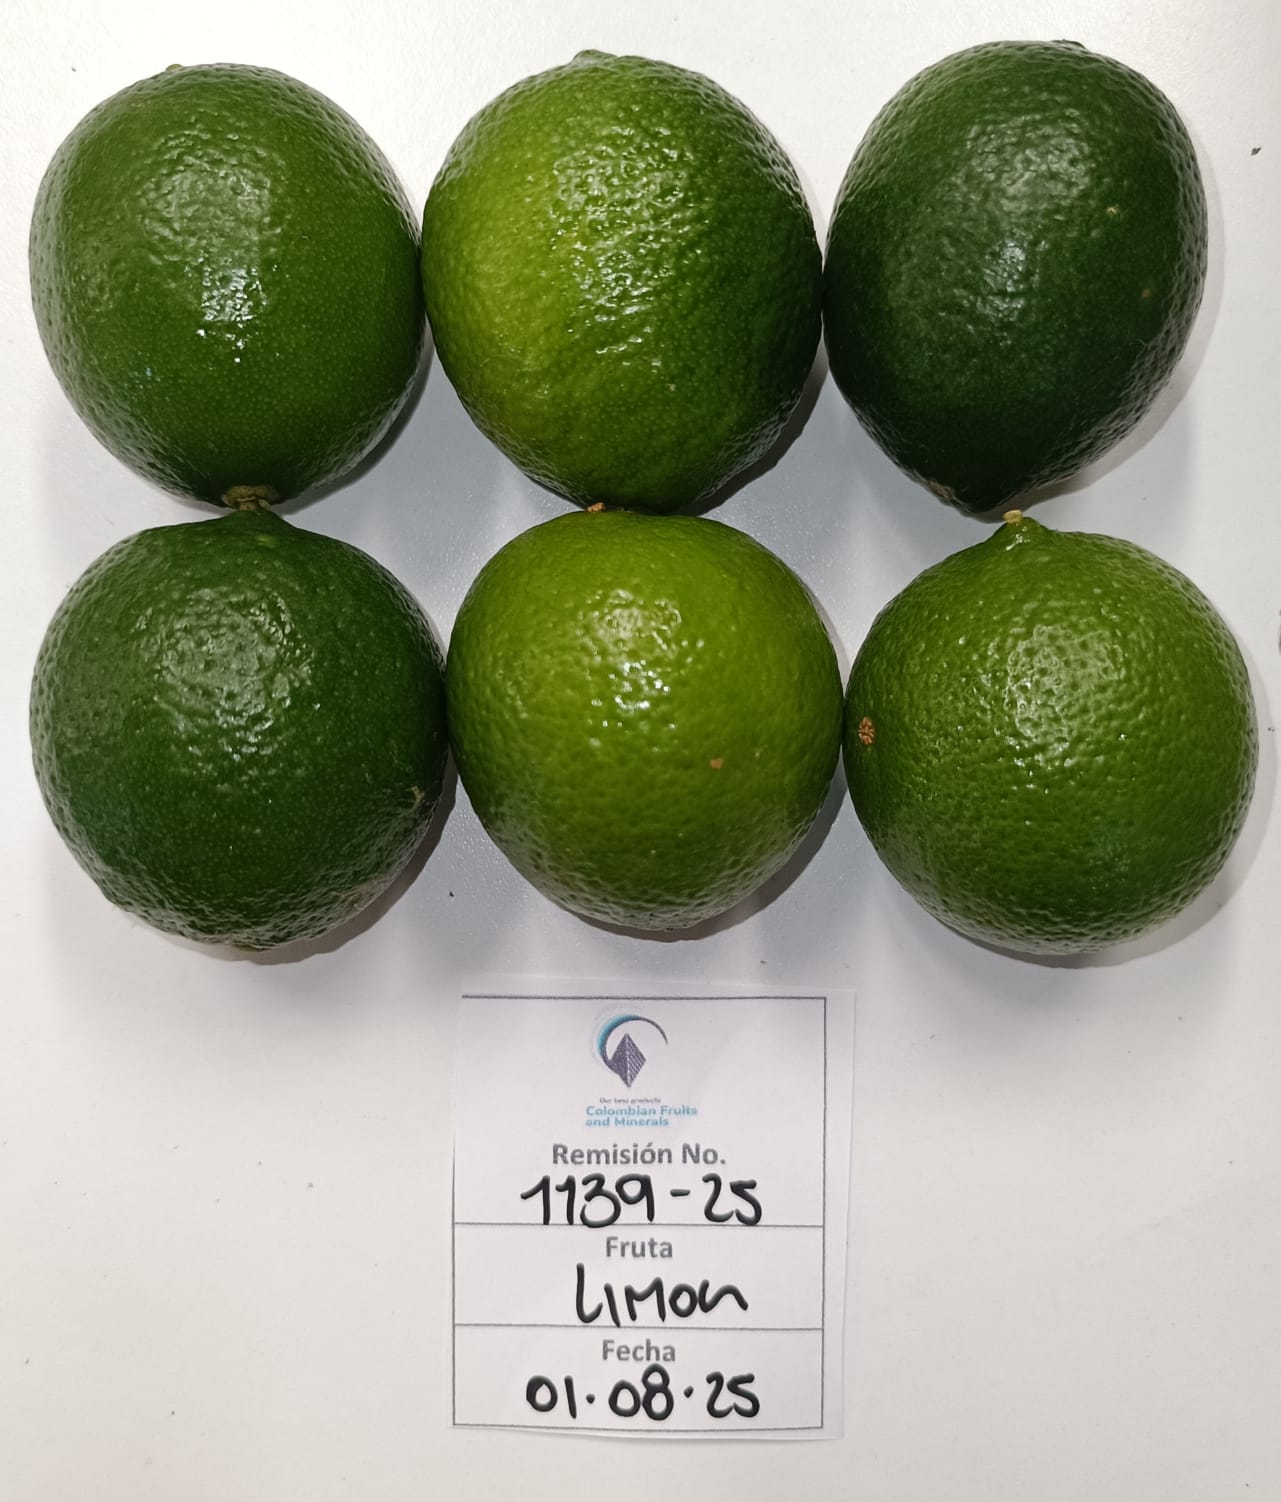 Our best products
Colombian Fruits
and Minerals
Remisión No.
1139-25
Fruta
LIMON
Fecha
01.08.25